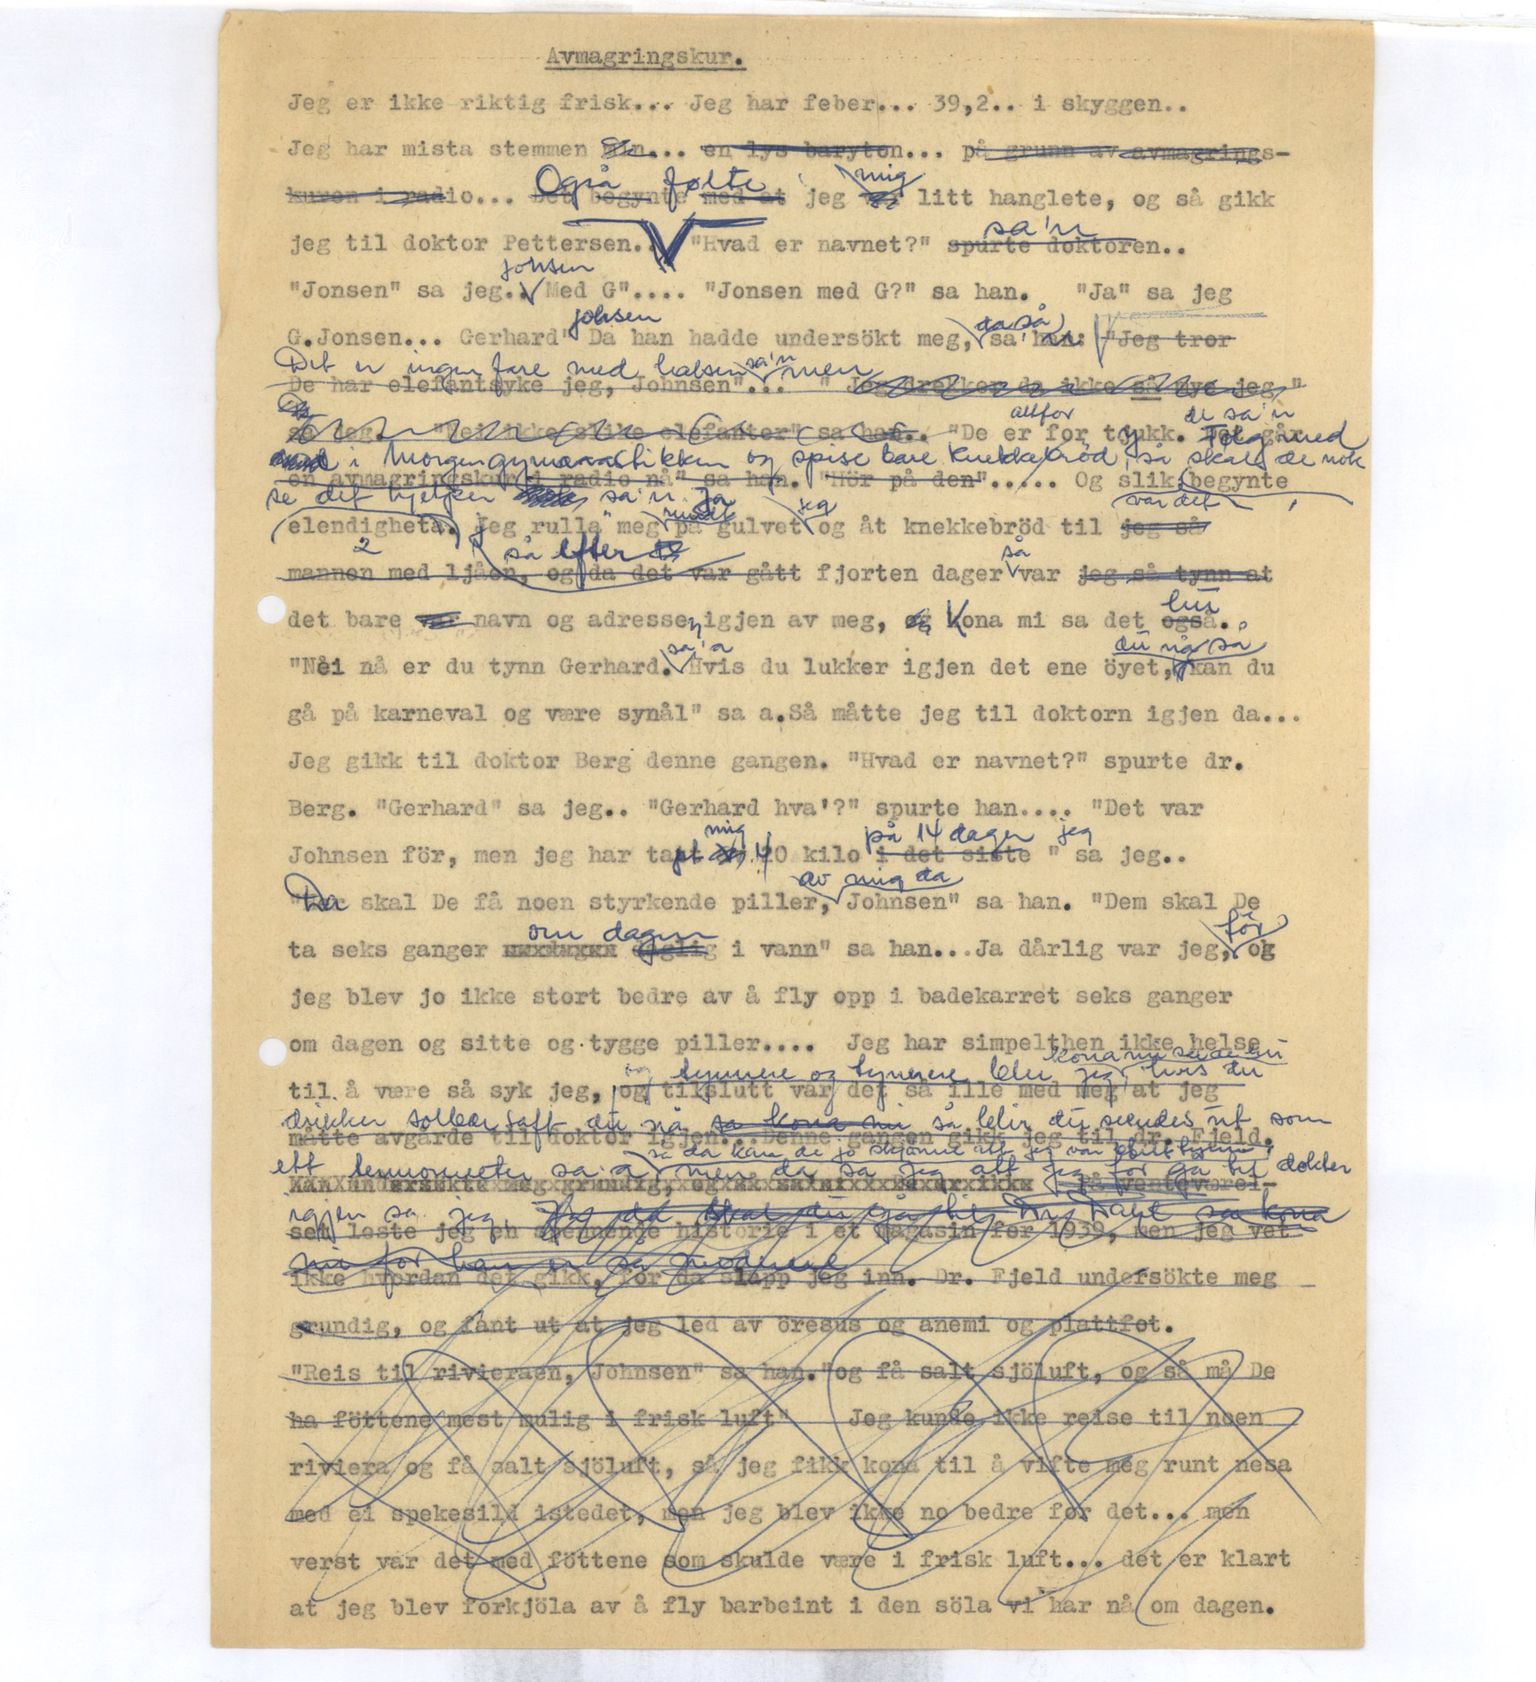 Avmagringskur.
Jeg er ikke riktig frisk... Jeg har feber... 39,2.. i skyggen..
Jeg har mista stemmen min... en lys baryton... på grunn av avmagrings-
Også følte mig
kuren i radio... Det begynte med at jeg var litt hanglete, og så gikk
sa'n
jeg til doktor Pettersen.. "Hvad er navnet?" spurte doktoren..
johsen
"Jonsen" sa jeg.. Med G".... "Jonsen med G?" sa han. "Ja" sa jeg
johsen da så
G.Jonsen... Gerhard" Da han hadde undersökt meg, sa han: "Jeg tror
Det er ingen fare med halsen sa'n men
De har elefantsyke jeg, Johnsen"... " Jeg drekker da ikke så mye jeg "
altfor de sa'n
sa jeg. "Nei ikke slike elefanter" sa han.. "De er for tjukk. Det går
med i morgengymnastikken og spise bare knekkebrød, så skal de nok
en avmagringskur i radio nå" sa han. "Hör på den"..... Og slik begynte
se det hjelper sa'n. Ja rundt jeg var det
elendigheta. Jeg rulla meg på gulvet og åt knekkebröd til jeg så
2 så efter så
mannen med ljåen, og da det var gått fjorten dager var jeg så tynn at
hu
det bare var navn og adresse igjen av meg, og Kona mi sa det også.
sa'a du nå så
"Nei nå er du tynn Gerhard. Hvis du lukker igjen det ene öyet, kan du
gå på karneval og være synål" sa a.Så måtte jeg til doktorn igjen da...
Jeg gikk til doktor Berg denne gangen. "Hvad er navnet?" spurte dr.
Berg. "Gerhard" sa jeg.. "Gerhard hva'?" spurte han.... "Det var
mig på 14 dager jeg
Johnsen för, men jeg har tapt 40 kilo i det siste " sa jeg..
av mig da
Da skal De få noen styrkende piller, Johnsen" sa han. "Dem skal De
om dagen för
ta seks ganger daglig i vann" sa han...Ja dårlig var jeg, og
jeg blev jo ikke stort bedre av å fly opp i badekarret seks ganger
om dagen og sitte og tygge piller.... Jeg har simpelthen ikke helse
tynnere og tynnere blev jeg, kona mi sa hvis du
til å være så syk jeg, og tilslutt var det så ille med meg at jeg
drikker solbærsaft du nå sa kona mi så blir du seendes ut som
måtte avgårde til doktor igjen...Denne gangen gikk jeg til dr. Fjeld.
ett termometer sa a men da sa jeg att jeg får gå til dokter
så da kan de jo skjønne att jeg var blitt tynn
Han undersøkte meg grundig, På venteværel-
igjen sa jeg Ja da skal du gå til Dr. Dahl sa kona
set leste jeg en spennende historie i et magasin for 1939, men jeg vet
mi for han er så moderne
ikke hvordan det gikk, for da slapp jeg inn. Dr. Fjeld undersökte meg
grundig, og fant ut at jeg led av öresus og anemi og plattfot.
"Reis til rivieraen, Johnsen" sa han."og få salt sjöluft, og så må De
ha föttene mest mulig i frisk luft" Jeg kunde ikke reise til noen
riviera og få salt sjöluft, så jeg fikk kona til å vifte meg runt nesa
med ei spekesild istedet, men jeg blev ikke no bedre for det... men
verst var det med föttene som skulde være i frisk luft... det er klart
at jeg blev forkjöla av å fly barbeint i den söla vi har nå om dagen.